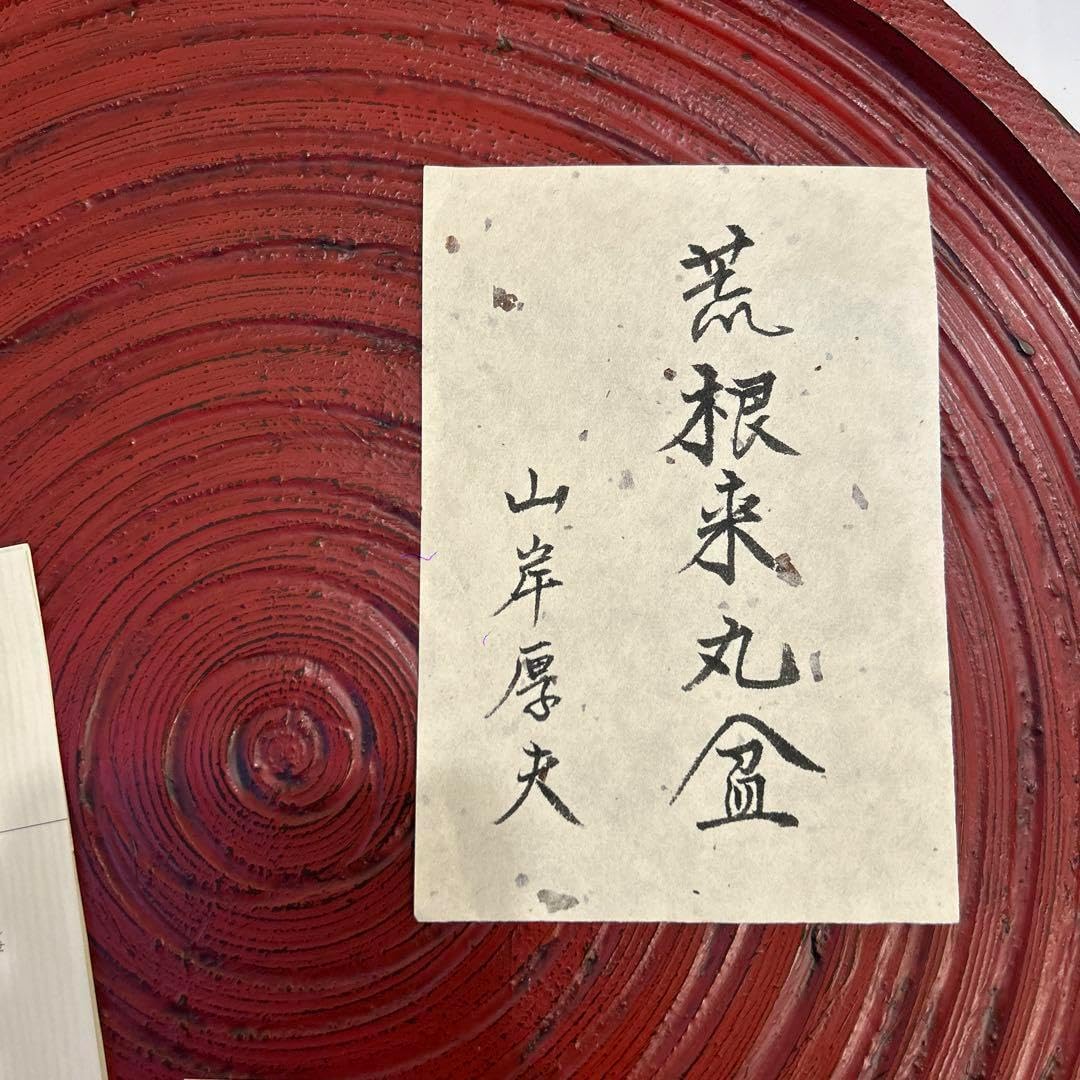 荒根来丸盆
山岸厚夫